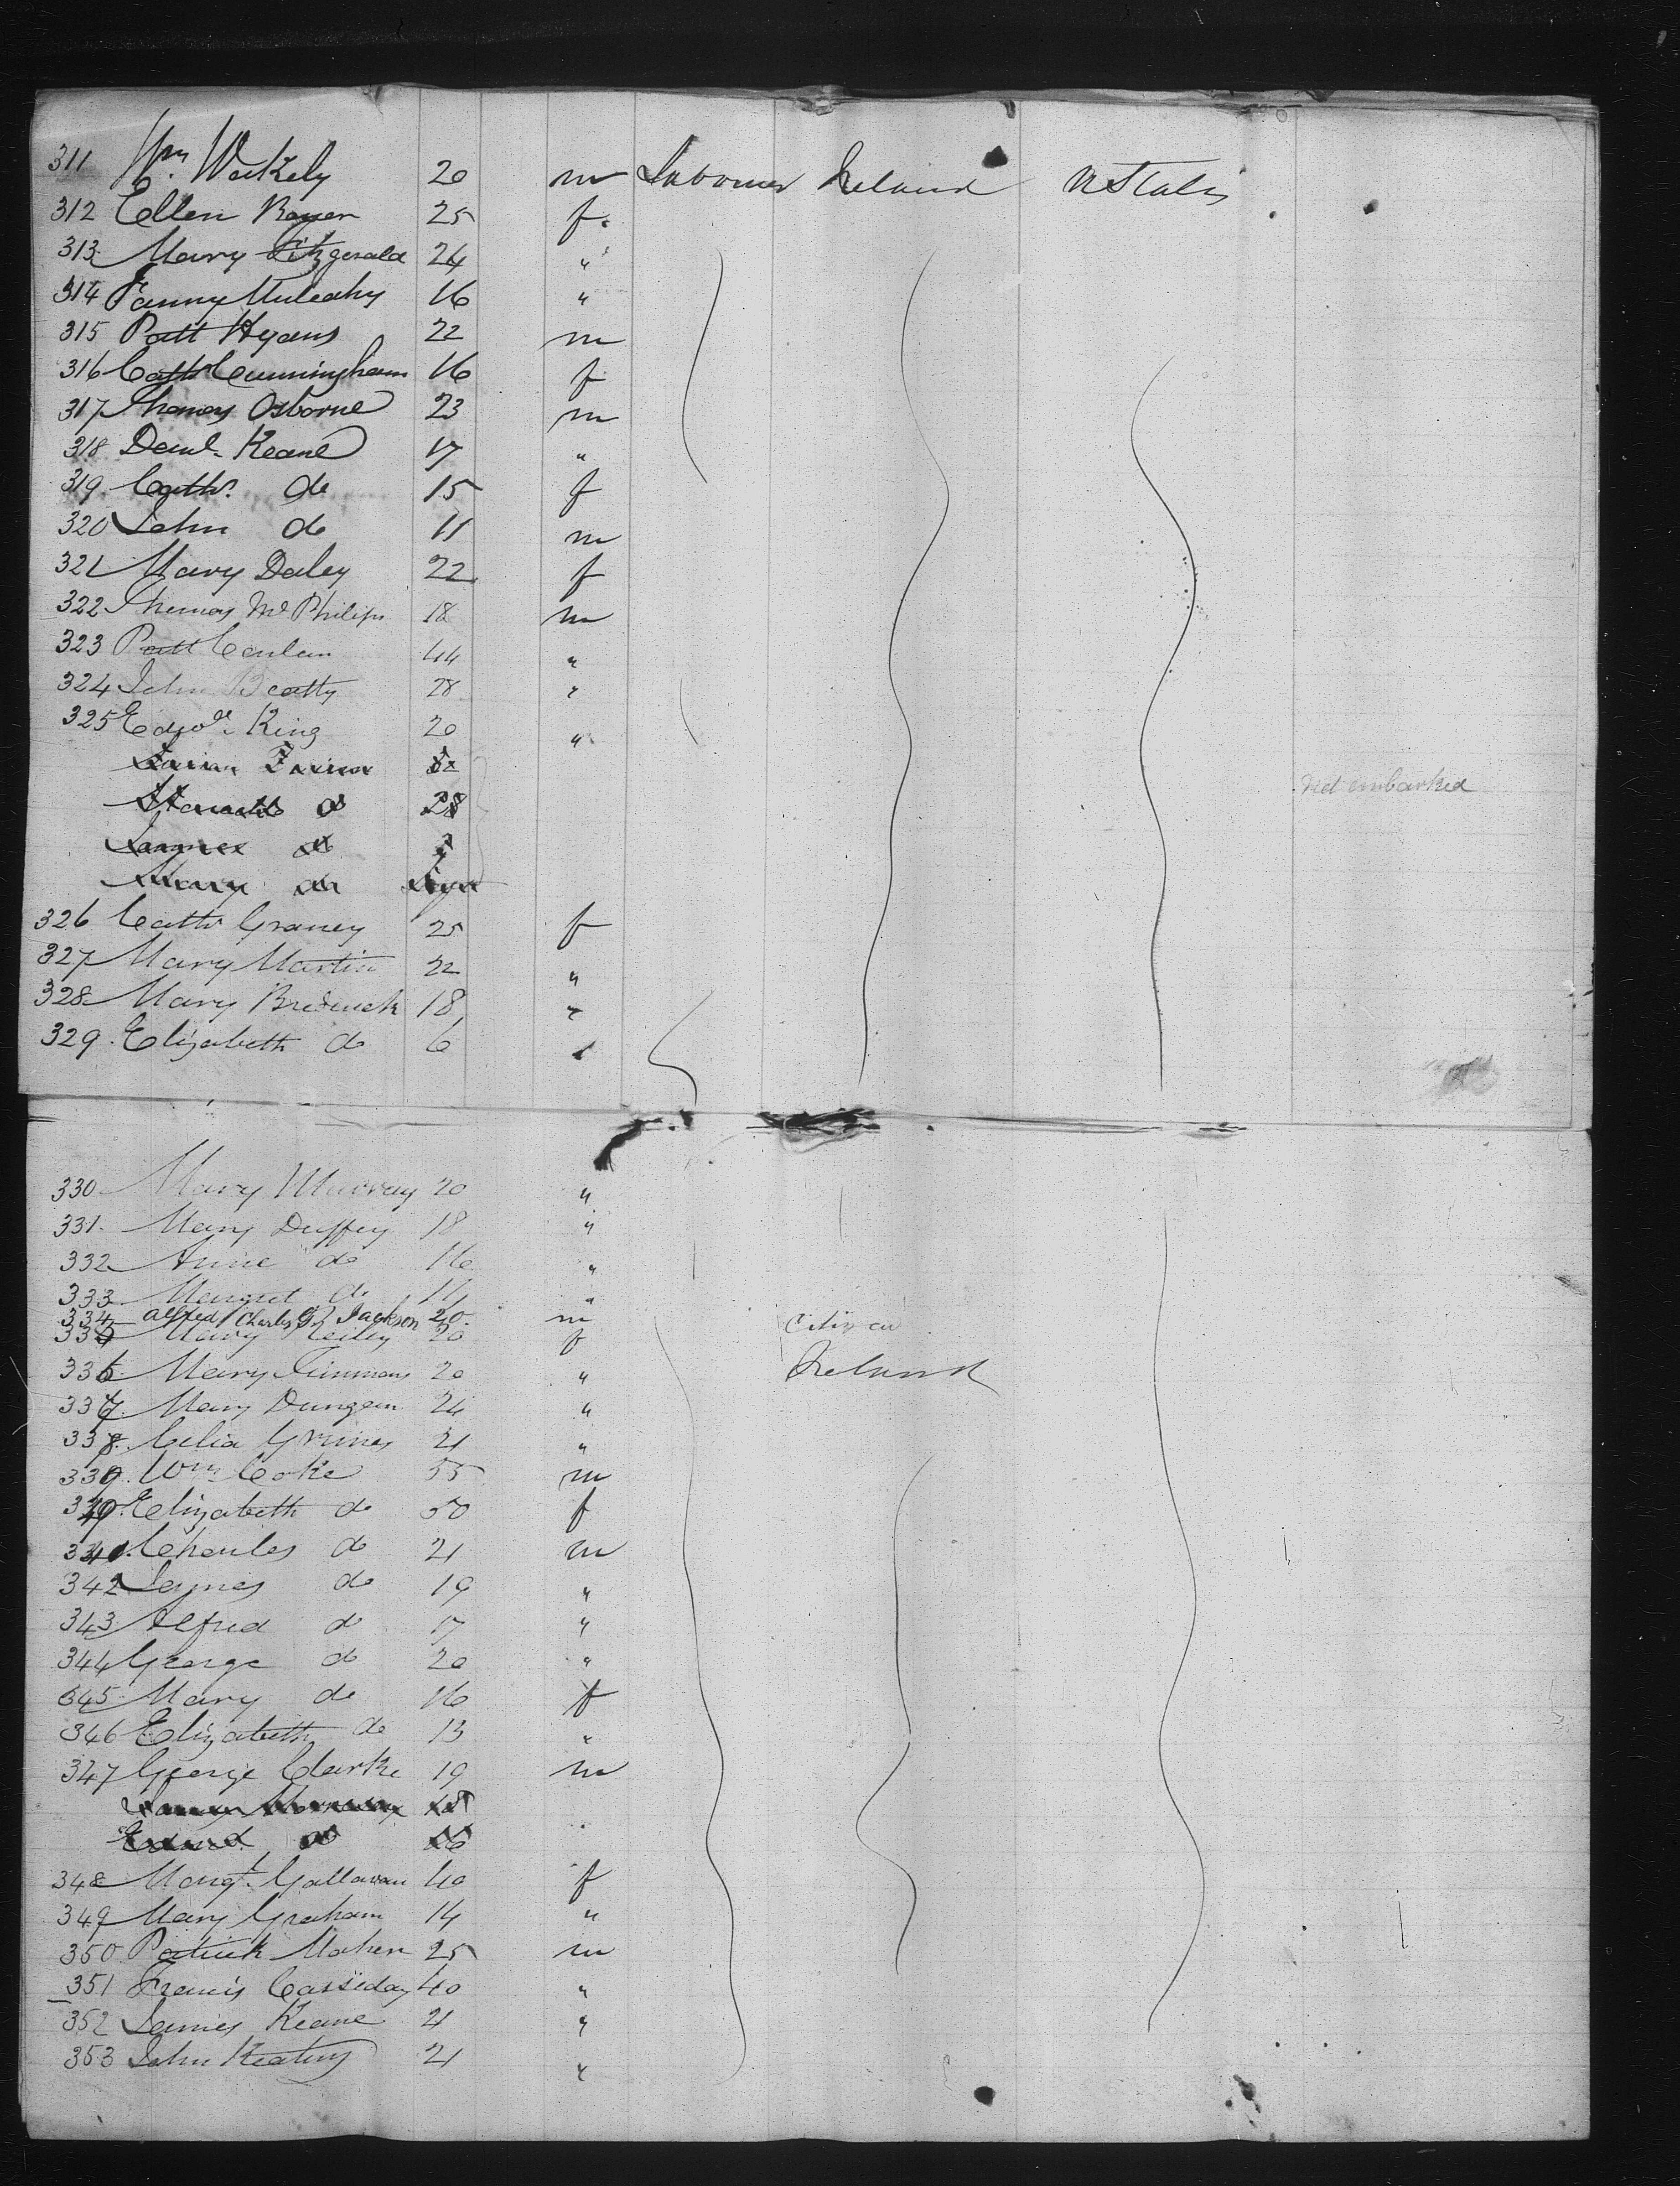 311 Wm. Wakely 20 m Labourer Ireland U States
312 Ellen Boyen 25 f.
313 Mary Fitzgerald 24 "
314 Fanny Mulcahy 16 "
315 Patt Hyans 22 m
316 Cathr Cunningham 16 f
317 Thomas Osborne 23 m
318 Danl. Keane 17 "
319. Cathr. do 15 f
320 John do 11 m
321 Mary Daley 22 f
322 Thomas Mc Philips 18 m
323 Patt Conlan 44 "
324 John Beatty 28 "
325 Edwd. King 20 "
do 28 not embarked
James do
Mary do
326 Cathr Graney 25 f
327 Mary Martin 22 "
328 Mary Broderick 18 "
329. Elizabeth do 6 "
330 Mary Murray 20 "
331. Mary Duffey 18 "
332 Anne do 16 "
333 Margret do 14 "
334 Alfred Charles G. Jackson 20. m Citizen
335 Mary Reiley 20 f
336 Mary Timmons 20 " Ireland
337. Mary Dungan 24 "
338. Celia Grimes 21 "
339. Wm Coke 55 m
Elizabeth do 50 f
Charles do 21 m
342 James do 19 "
343 Alfred do 17 "
344 George do 20 "
345 Mary do 16 f
346 Elizabeth do 13 "
347 George Clarke 19 m
18
do 16
348 Margt. Gallavan 40 f
349 Mary Graham 14 "
350 Patrick Maher 25 m
351 Francis Cassiday 40 "
352 James Keane 21 "
353 John Keating 21 "